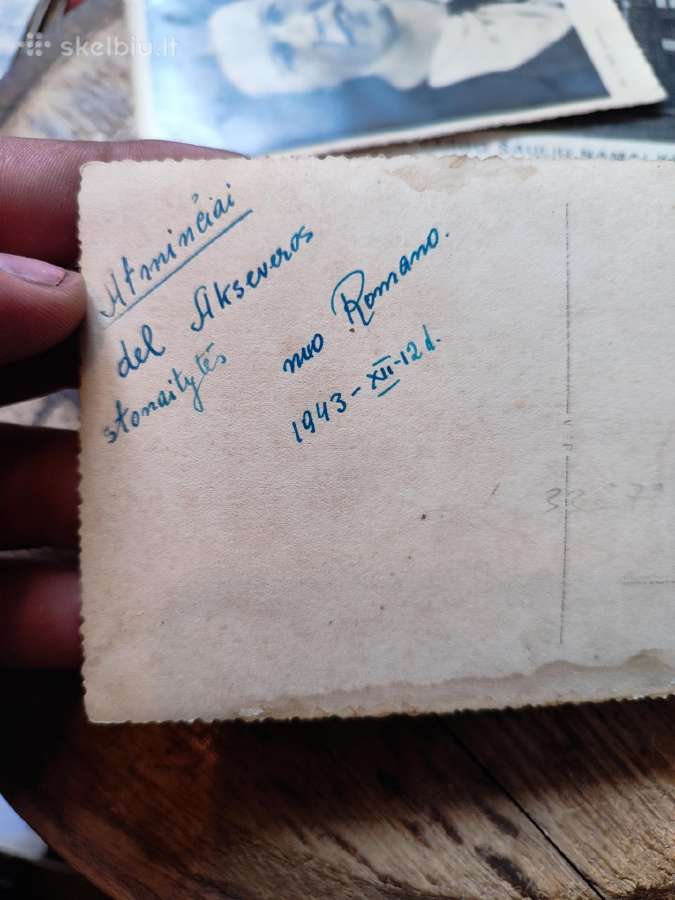 skelbiu.lt
Atminčiai
del Akseveros
stonaitytės
nuo Romano.
1943-XII-12 d.
V.P.